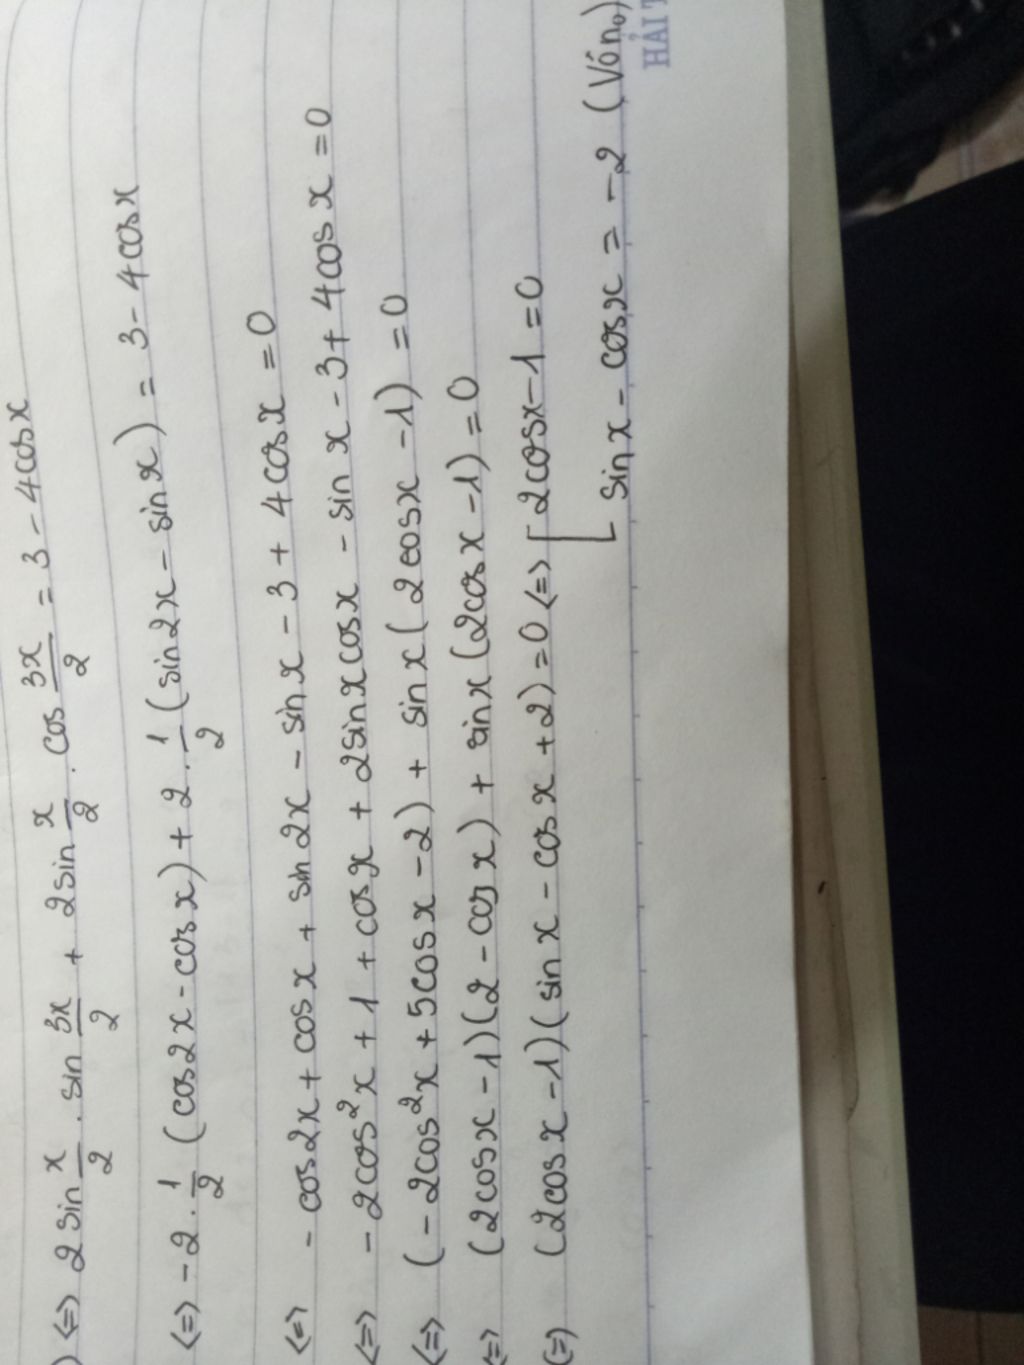 ) <=> 2 sin x/2 . sin 3x/2 + 2sin x/2 . cos 3x/2 = 3 - 4cosx
<=> -2 . 1/2 (cos2x - cosx) + 2 . 1/2 (sin2x - sinx) = 3 - 4cosx
<=> - cos2x + cosx + sin2x - sinx - 3 + 4cosx = 0
<=> -2cos²x + 1 + cosx + 2sinxcosx - sinx - 3 + 4cosx = 0
<=> (-2cos²x + 5cosx - 2) + sinx(2cosx - 1) = 0
<=> (2cosx - 1)(2 - cosx) + sinx(2cosx - 1) = 0
(=) (2cosx - 1)(sinx - cosx + 2) = 0 <=> [ 2cosx - 1 = 0
sinx - cosx = -2 (Vôn₀)
HẢI T